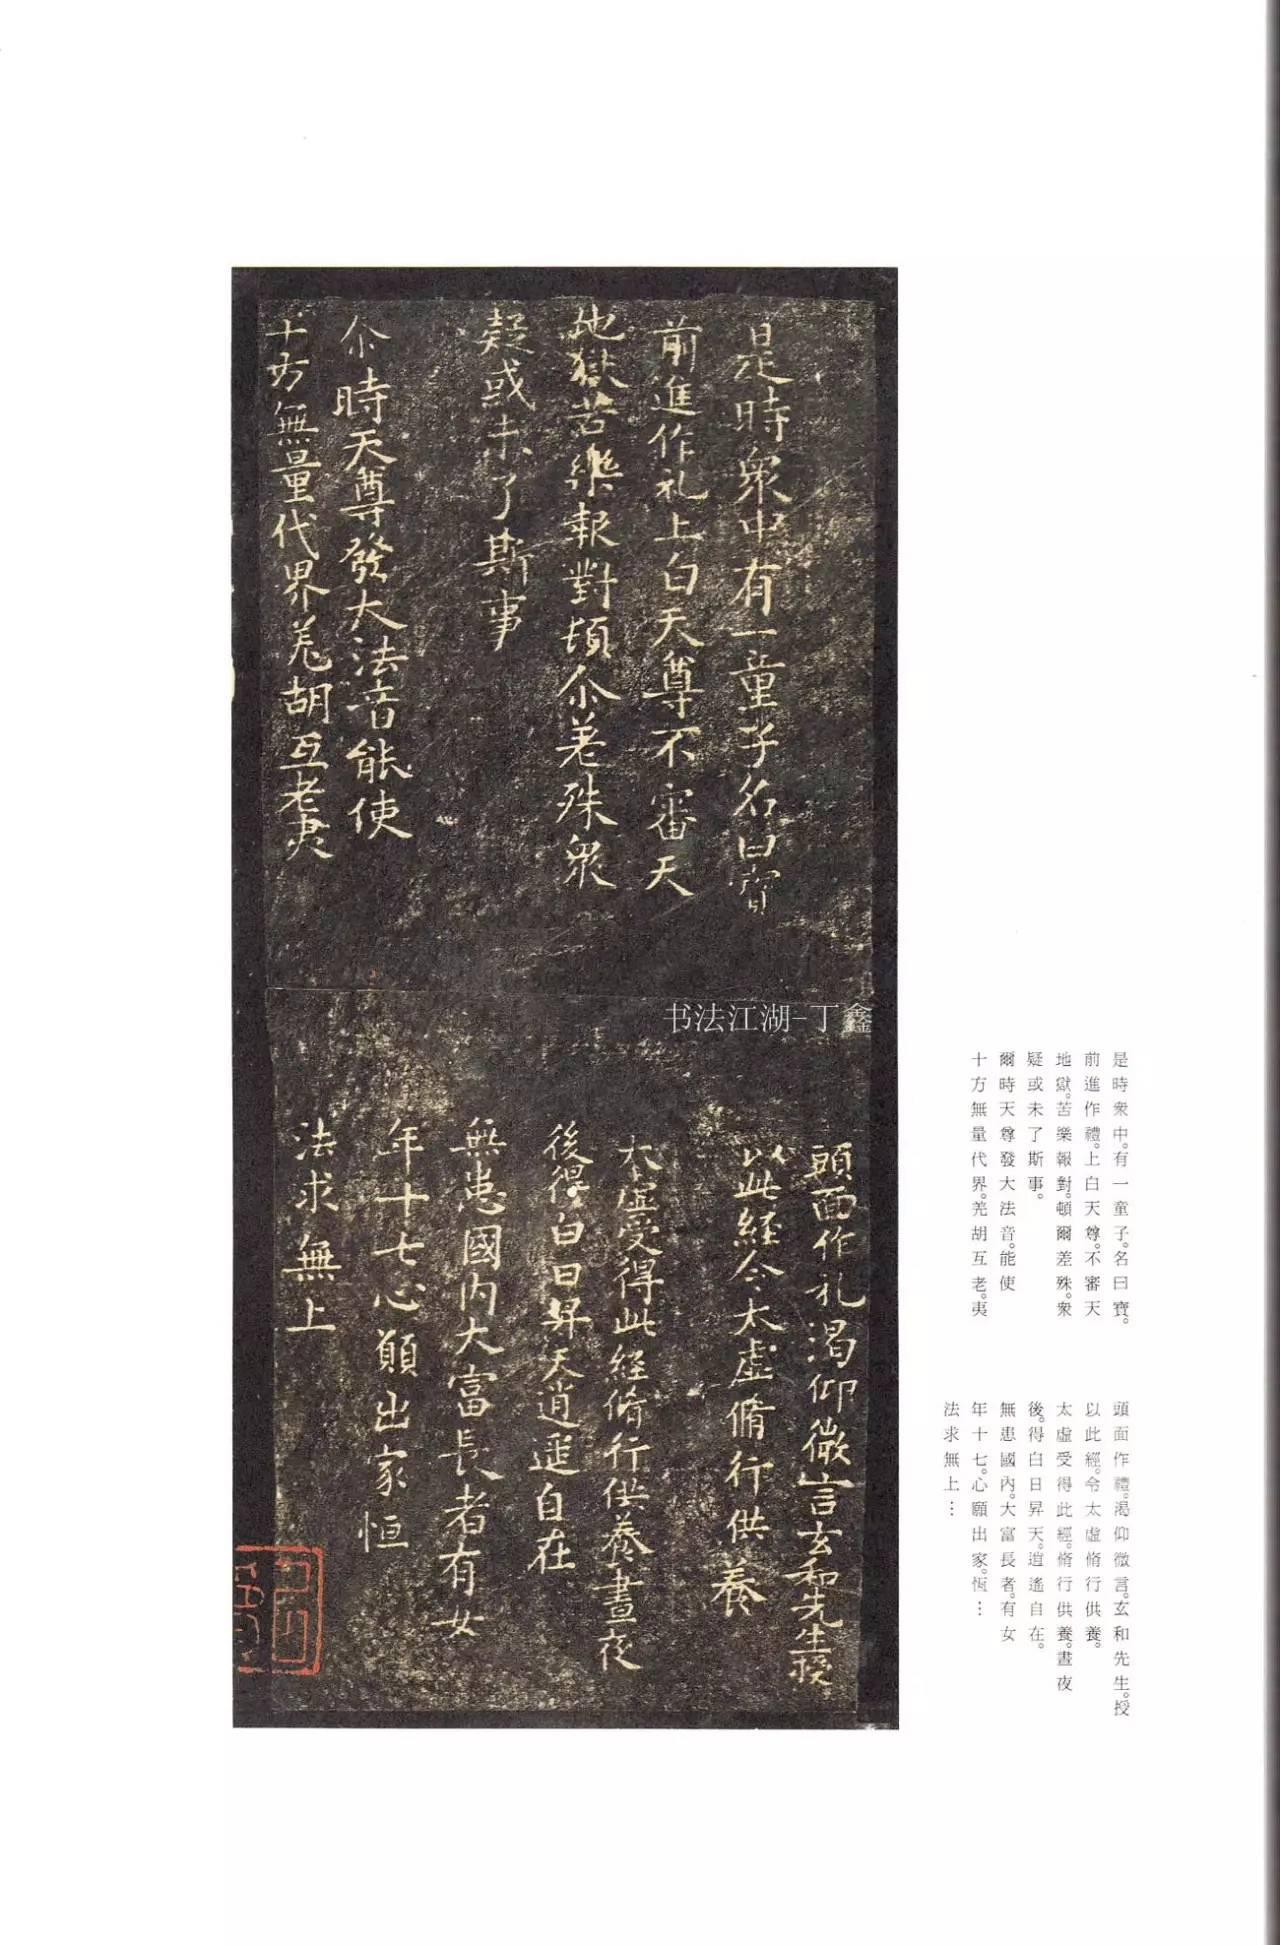 是時衆中有一童子名曰寶
前進作礼上白天尊不審天
地獄苦樂報對頓尒差殊衆
疑或未了斯事
尒時天尊發大法音能使
十方無量代界羗胡互老夷
頭面作礼渴仰微言玄和先生授
以此經令太虛脩行供養
太虛受得此經脩行供養晝夜
後得白日昇天逍遥自在
無患國内大富長者有女
年十七心願出家恒
法求無上
书法江湖-丁鑫
是時衆中。有一童子。名曰寶。
前進作禮。上白天尊。不審天
地獄。苦樂報對。頓爾差殊。衆
疑或未了斯事。
爾時天尊發大法音。能使
十方無量代界。羌胡互老。夷
頭面作禮。渴仰微言。玄和先生。授
以此經。令太虛脩行供養。
太虛受得此經。脩行供養。晝夜
後。得白日昇天。逍遙自在。
無患國內。大富長者。有女
年十七。心願出家。恆…
法求無上…